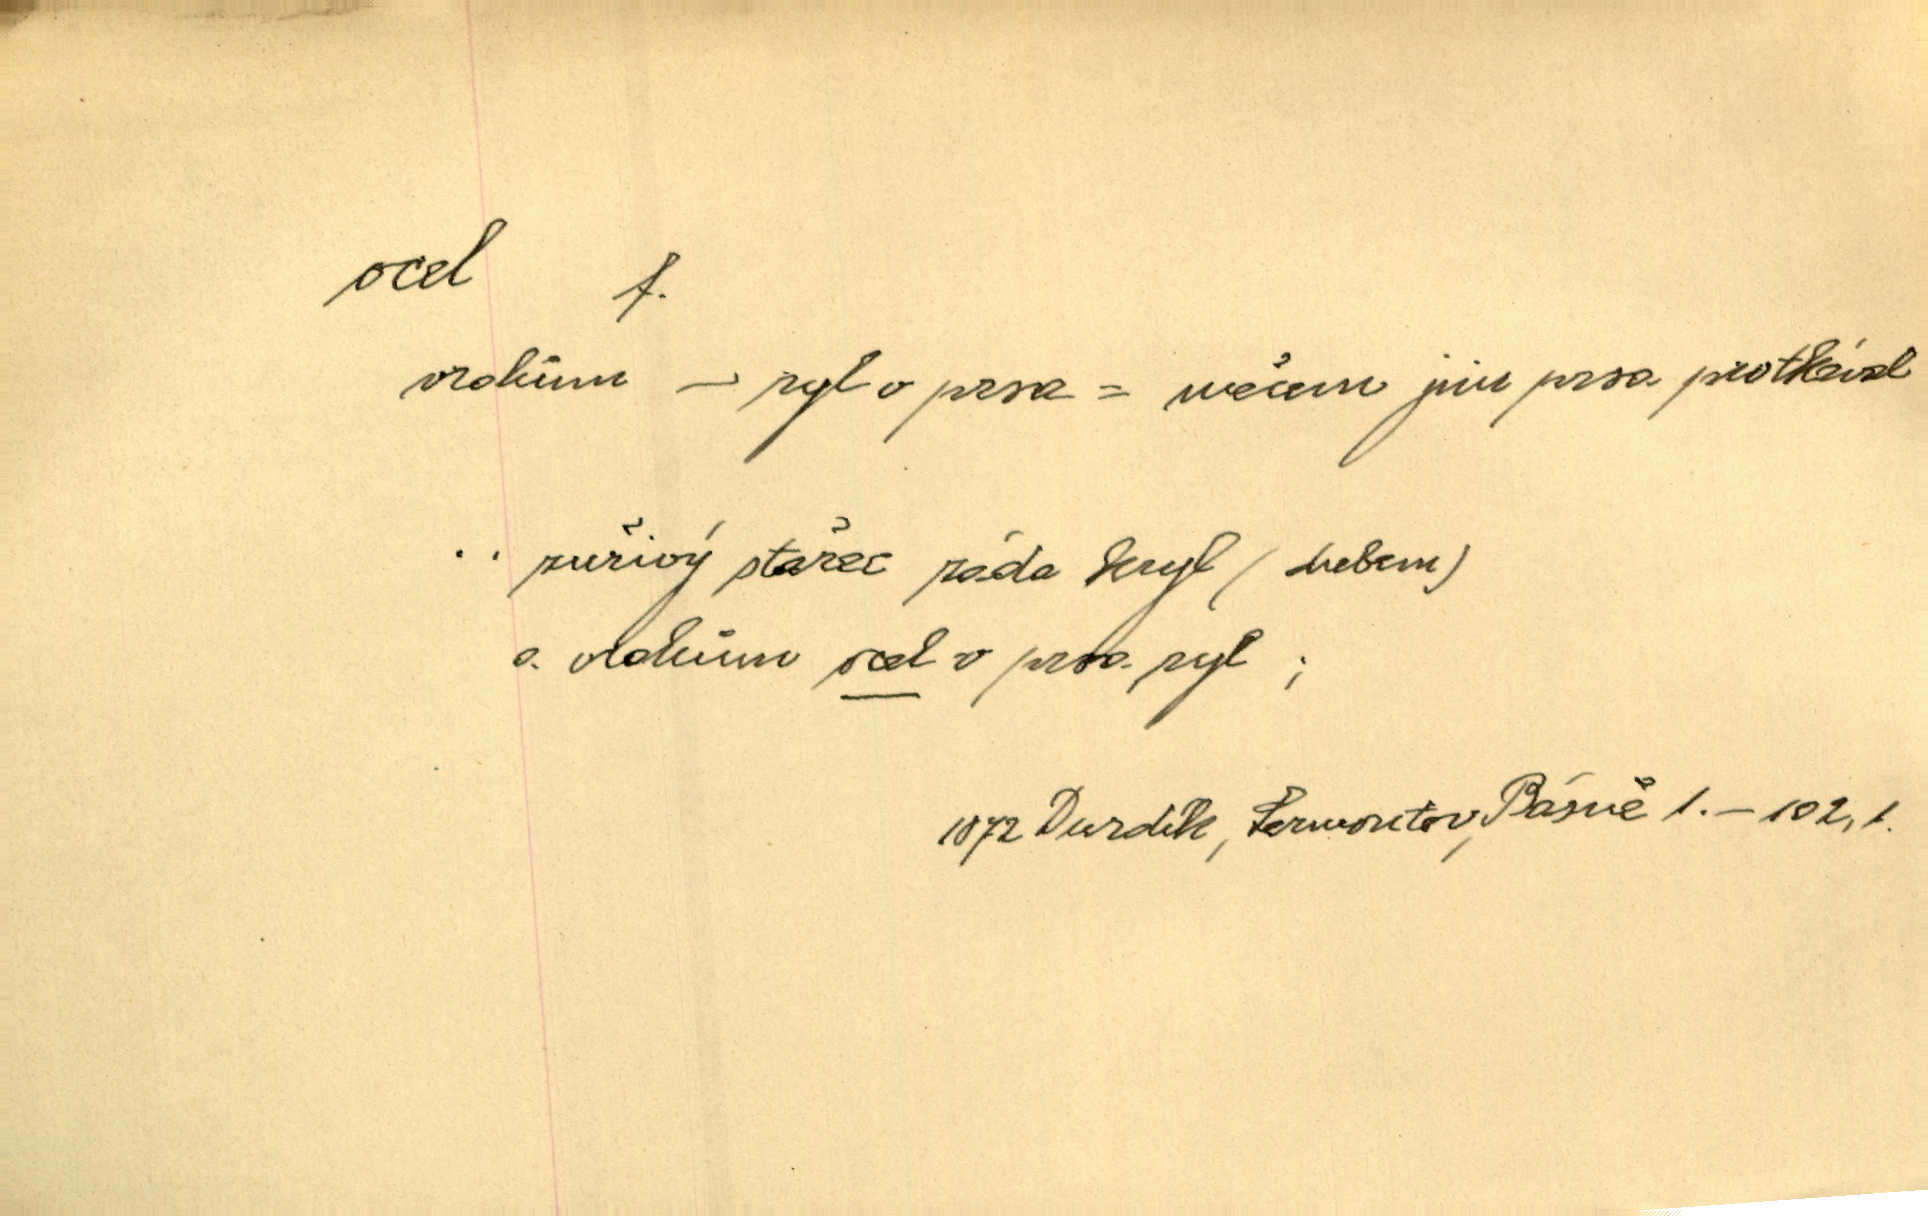 ocel f.
vrahům – ryl v prsa = mečem jim prsa protkával
.. zuřivý stařec záda kryl (hebem)
a vrahům ocel v prsa ryl ;
1872 Durdík, Lermontov, Básně 1. – 102, 1.